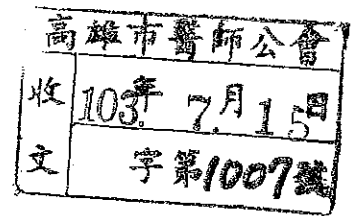 高雄市醫師公會
收文
103年 7月15日
字第1007號